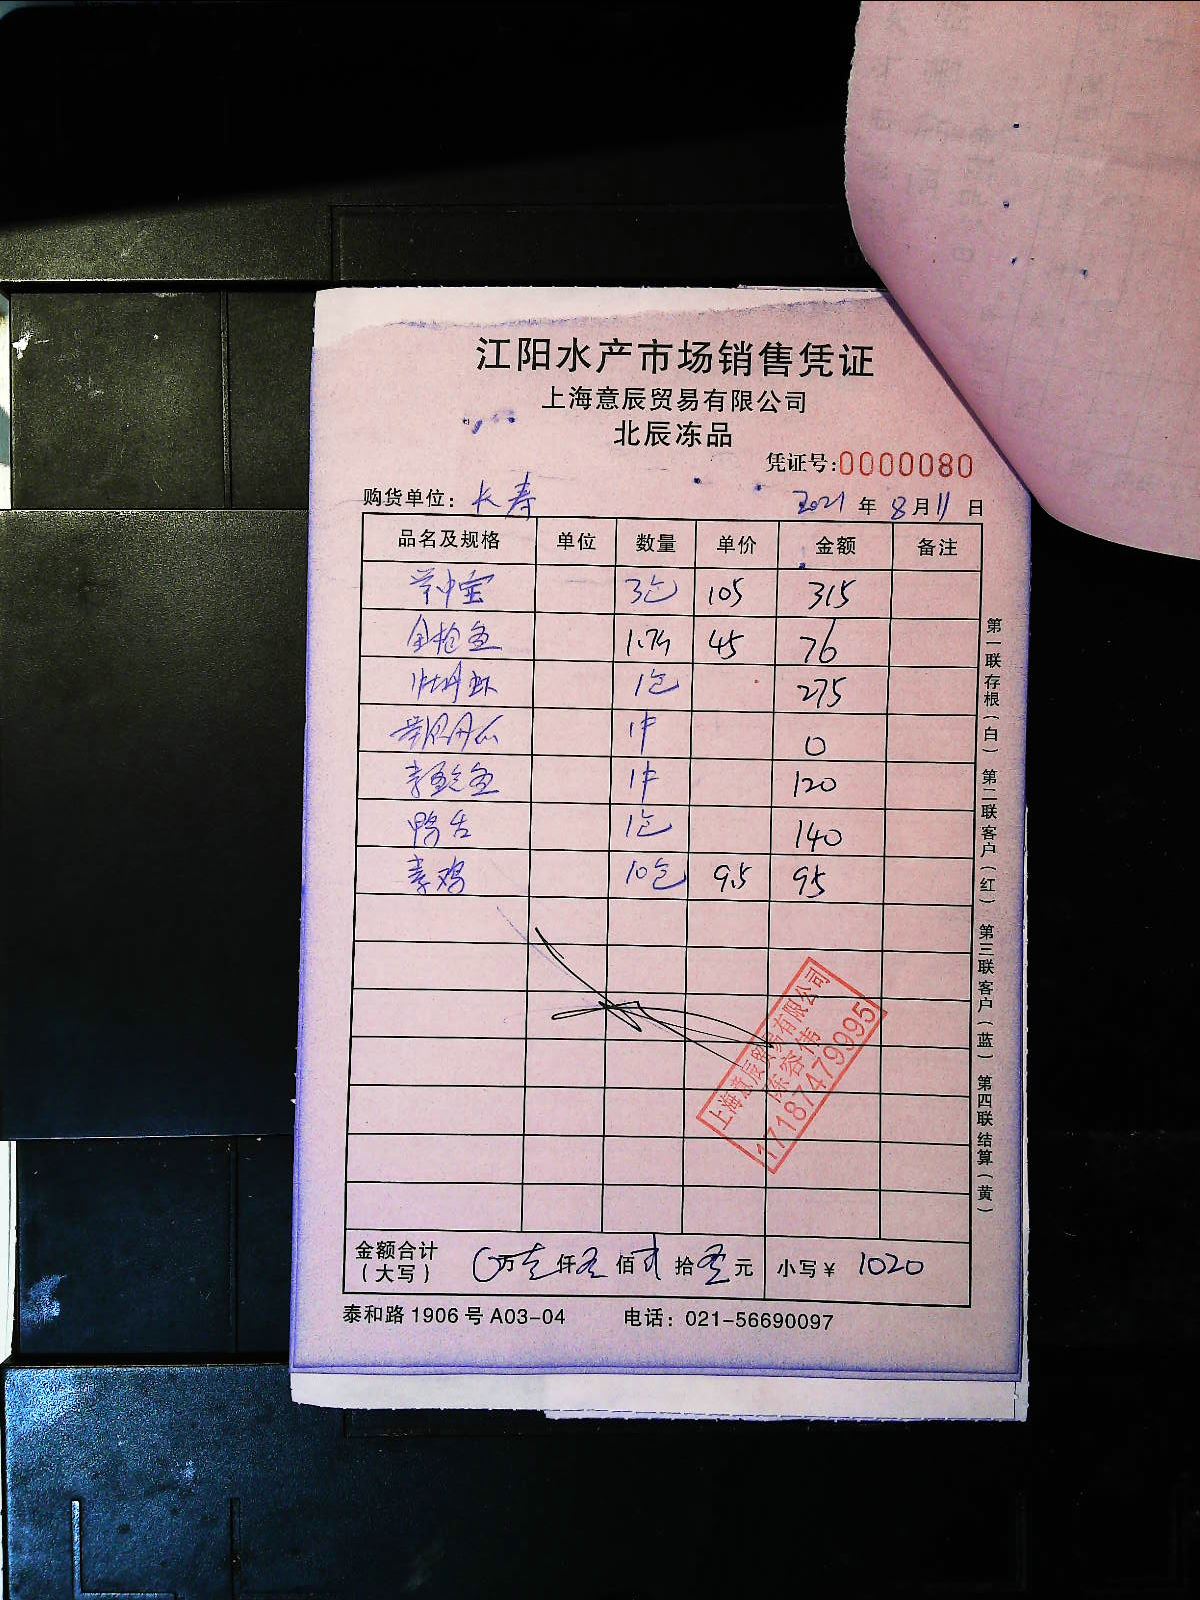 江阳水产市场销售凭证
上海意辰贸易有限公司
北辰冻品
凭证号:0000080
购货单位: 长寿 2021 年 8 月 11 日
品名及规格 单位 数量 单价 金额 备注
3包 105 315
金枪鱼 45 76
牡丹虾 1包 275
1件 0
1件 120
鸭舌 1包 140
素鸡 10包 9.5 95
上海意辰贸易有限公司
17187479995
金额合计
(大写) 万 仟 佰 拾 元 小写¥ 1020
泰和路 1906 号 A03-04 电话: 021-56690097
第一联存根(白) 第二联客户(红) 第三联客户(蓝) 第四联结算(黄)